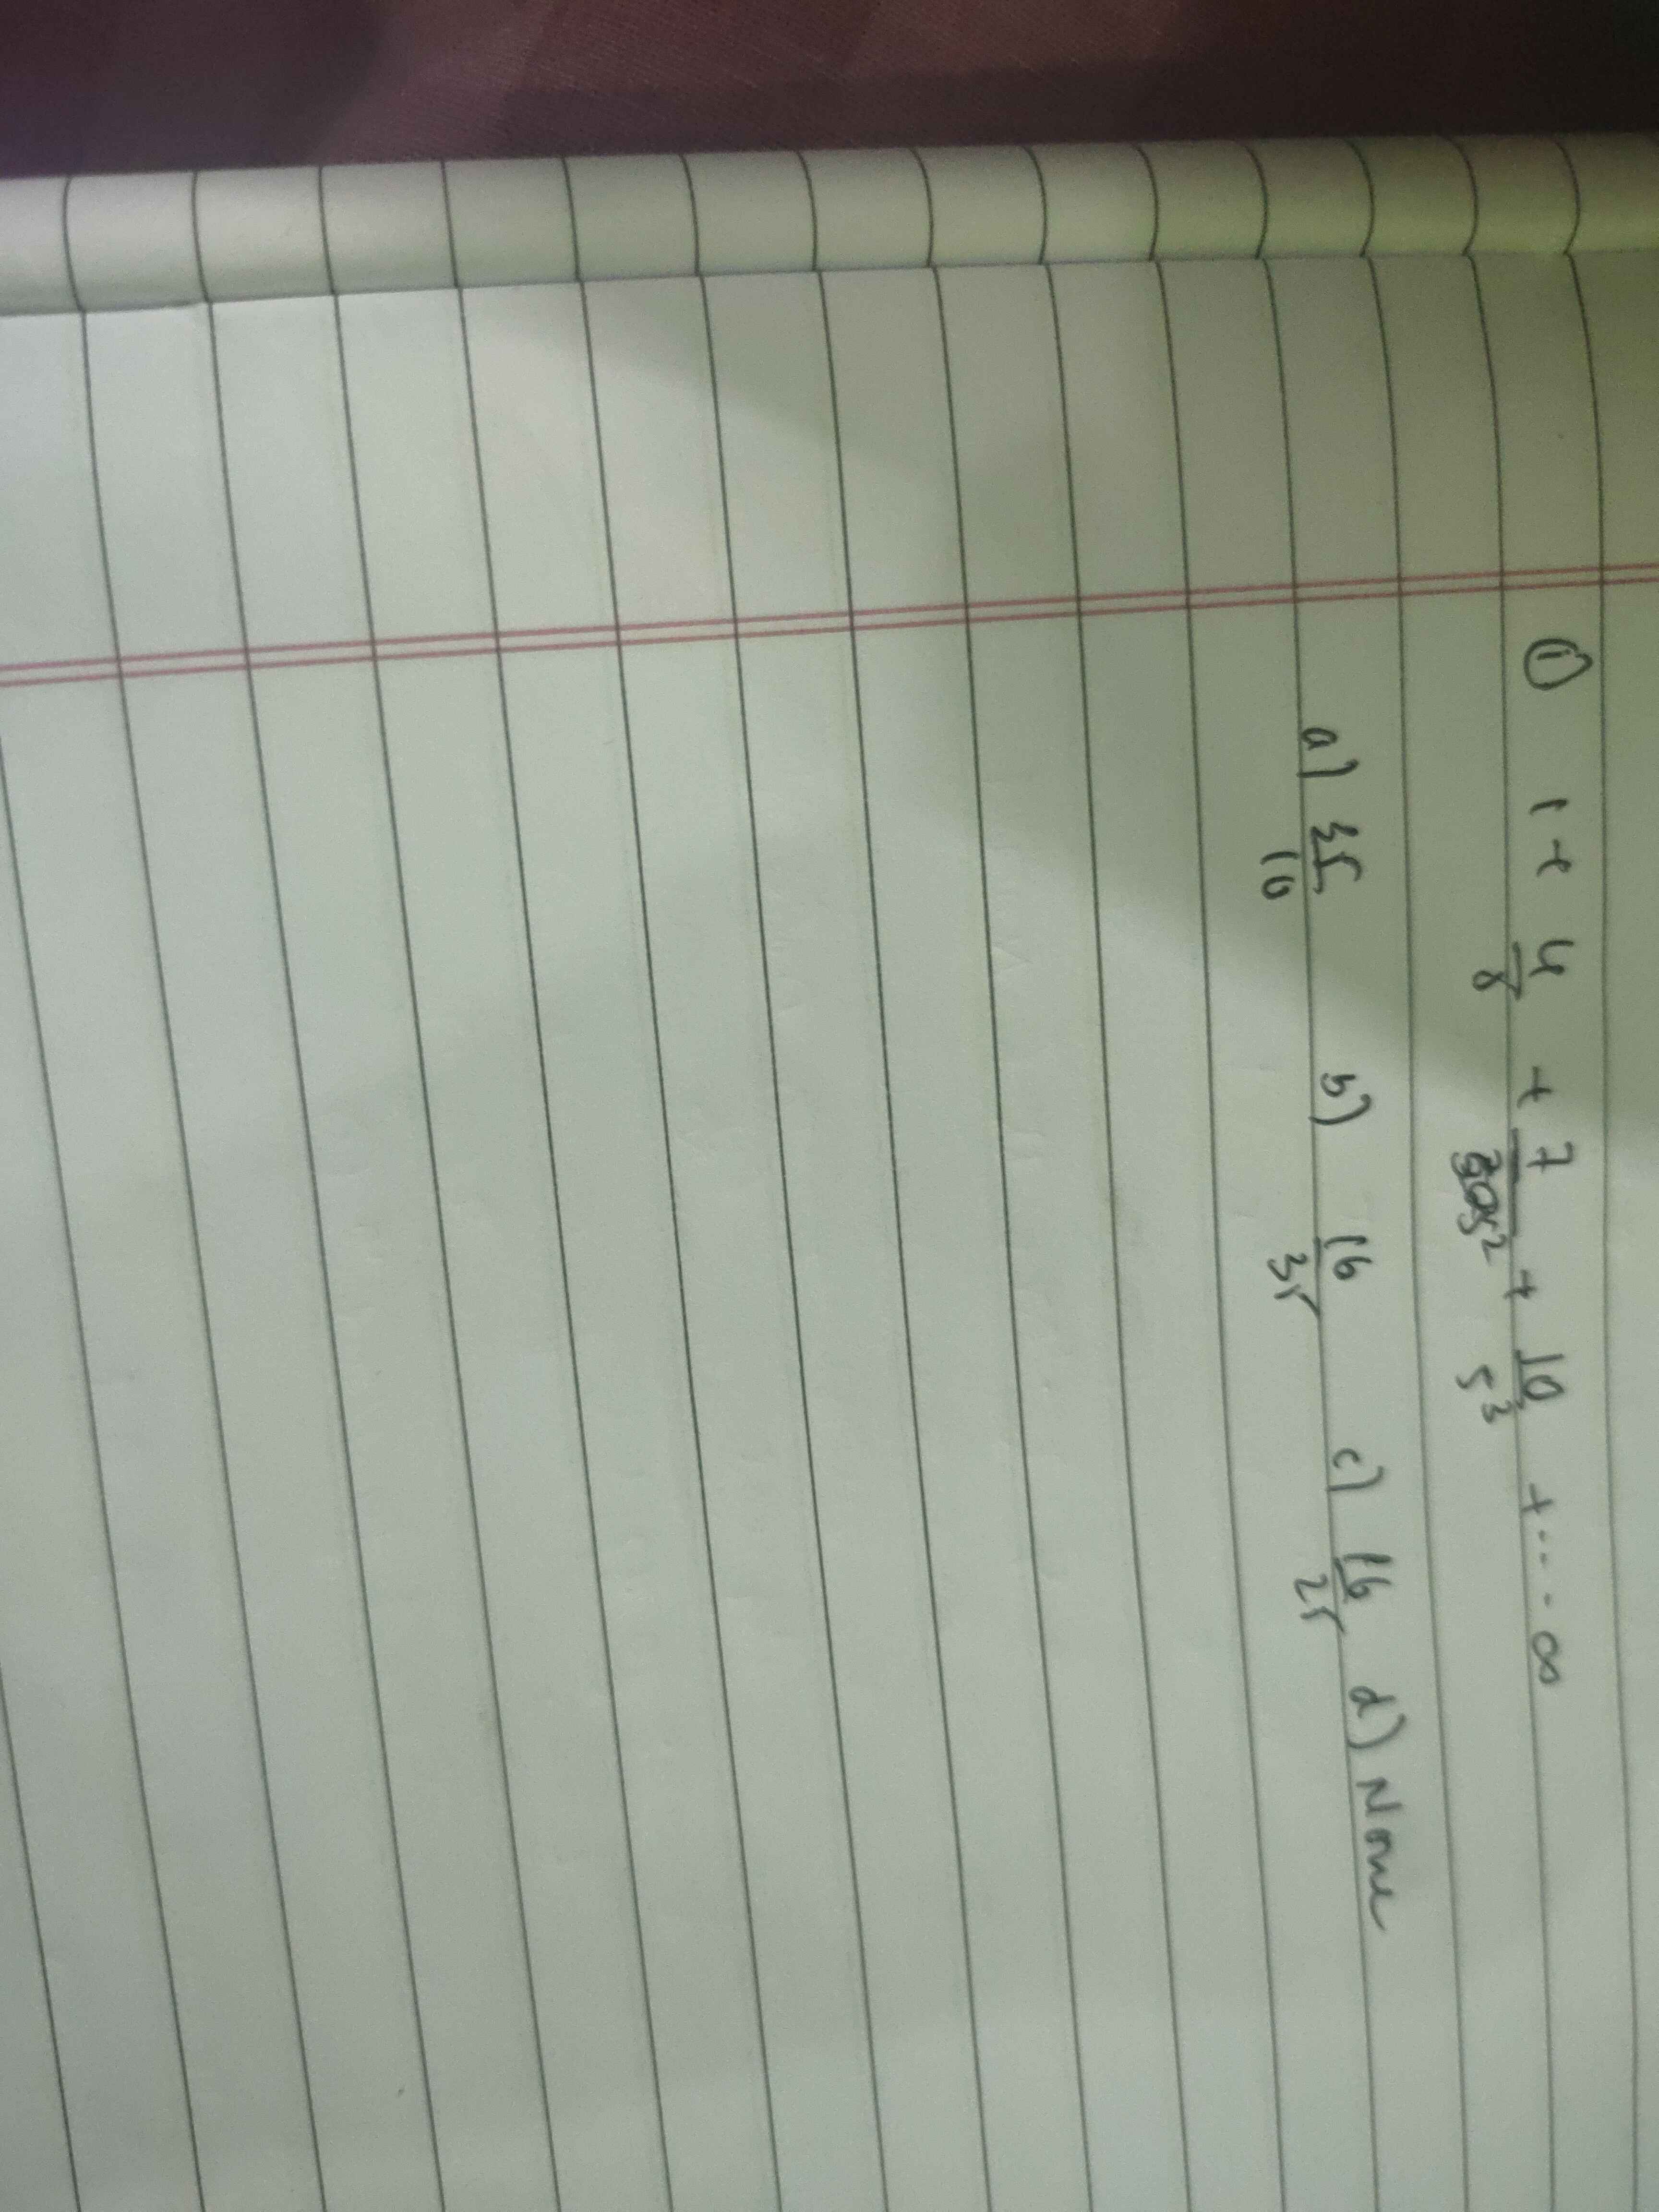 ① 1 + 4/5 + 7/5² + 10/5³ + ... ∞
a) 35/16 b) 16/35 c) 16/25 d) None